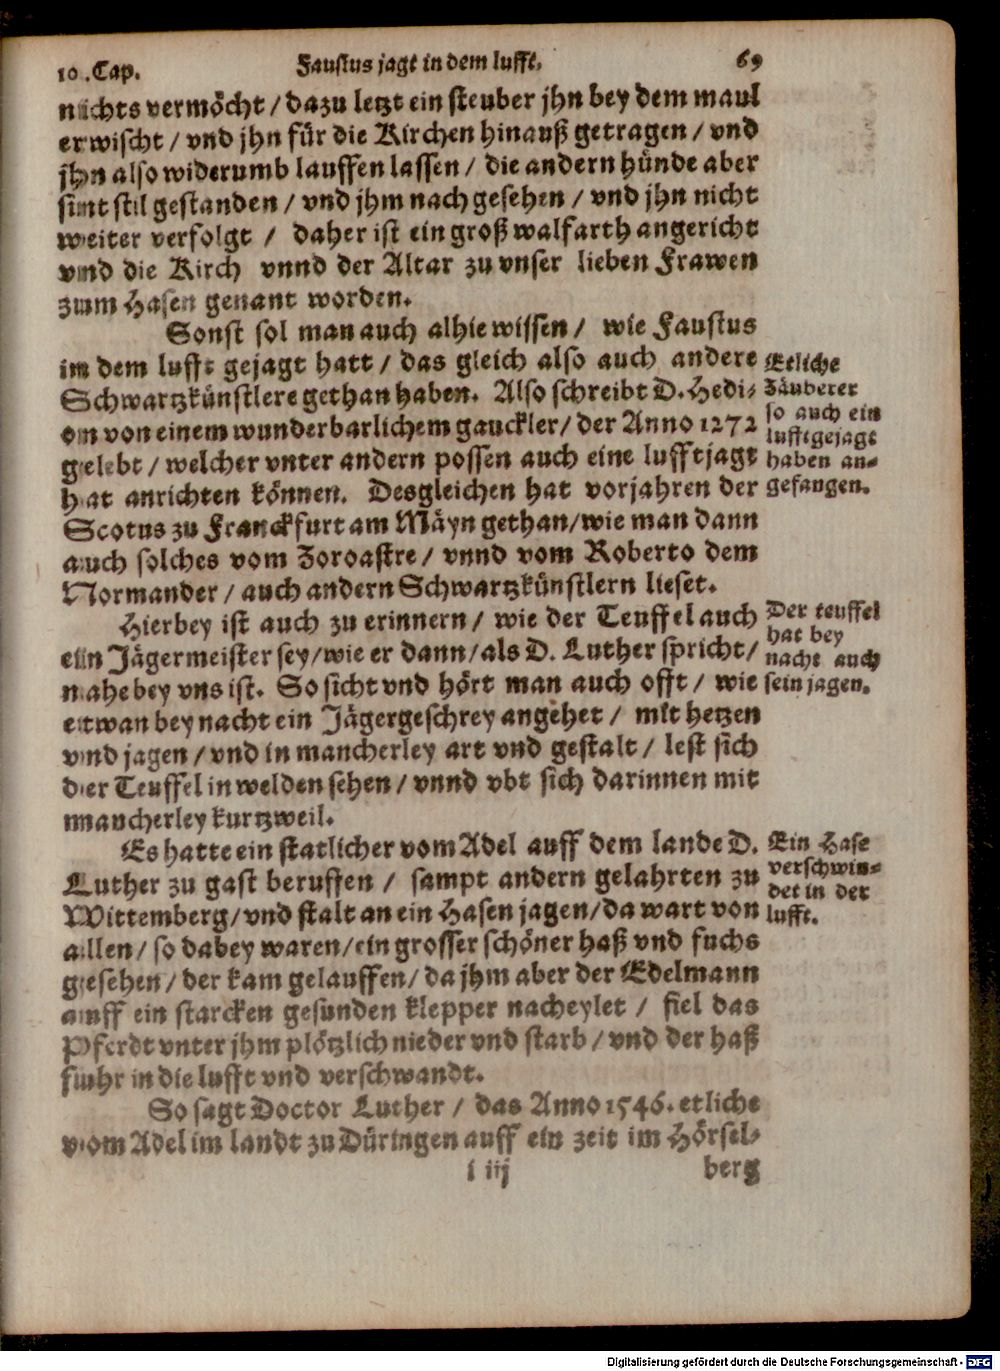 10.Cap. Faustus jagt in dem lufft. 69
nichts vermöcht / dazu letzt ein steuber jhn bey dem maul
erwischt / vnd jhn für die Kirchen hinauß getragen / vnd
jhn also widerumb lauffen lassen / die andern hünde aber
sint stil gestanden / vnd jhm nach gesehen / vnd jhn nicht
weiter verfolgt / daher ist ein groß walfarth angericht
vnd die Kirch vnnd der Altar zu vnser lieben Frawen
zum Hasen genant worden.
Sonst sol man auch alhie wissen / wie Faustus
im dem lufft gejagt hatt / das gleich also auch andere
Schwartzkünstlere gethan haben. Also schreibt D. Hedi-
on von einem wunderbarlichem gauckler / der Anno 1272
gelebt / welcher vnter andern possen auch eine lufftjagt
hat anrichten können. Desgleichen hat vorjahren der
Scotus zu Franckfurt am Mäyn gethan / wie man dann
auch solches vom Zoroastre / vnnd vom Roberto dem
Normander / auch andern Schwartzkünstlern lieset.
Etliche
Zäuberer
so auch ein
lufftgejagt
haben an-
gefangen.
Hierbey ist auch zu erinnern / wie der Teuffel auch
ein Jägermeister sey / wie er dann / als D. Luther spricht /
nahe bey vns ist. So sicht vnd hört man auch offt / wie
etwan bey nacht ein Jägergeschrey angehet / mit hetzen
vnd jagen / vnd in mancherley art vnd gestalt / lest sich
der Teuffel in welden sehen / vnnd vbt sich darinnen mit
mancherley kurtzweil.
Der teuffel
hat bey
nacht auch
sein jagen.
Es hatte ein statlicher vom Adel auff dem lande D.
Luther zu gast beruffen / sampt andern gelahrten zu
Wittemberg / vnd stalt an ein Hasen jagen / da wart von
allen / so dabey waren / ein grosser schöner haß vnd fuchs
gesehen / der kam gelauffen / da jhm aber der Edelmann
auff ein starcken gesunden klepper nacheylet / fiel das
Pferdt vnter jhm plötzlich nieder vnd starb / vnd der haß
fuhr in die lufft vnd verschwandt.
Ein Hase
verschwin-
det in der
lufft.
So sagt Doctor Luther / das Anno 1546. etliche
vom Adel im landt zu Düringen auff ein zeit im Hörsel-
i iij berg
Digitalisierung gefördert durch die Deutsche Forschungsgemeinschaft - DFG